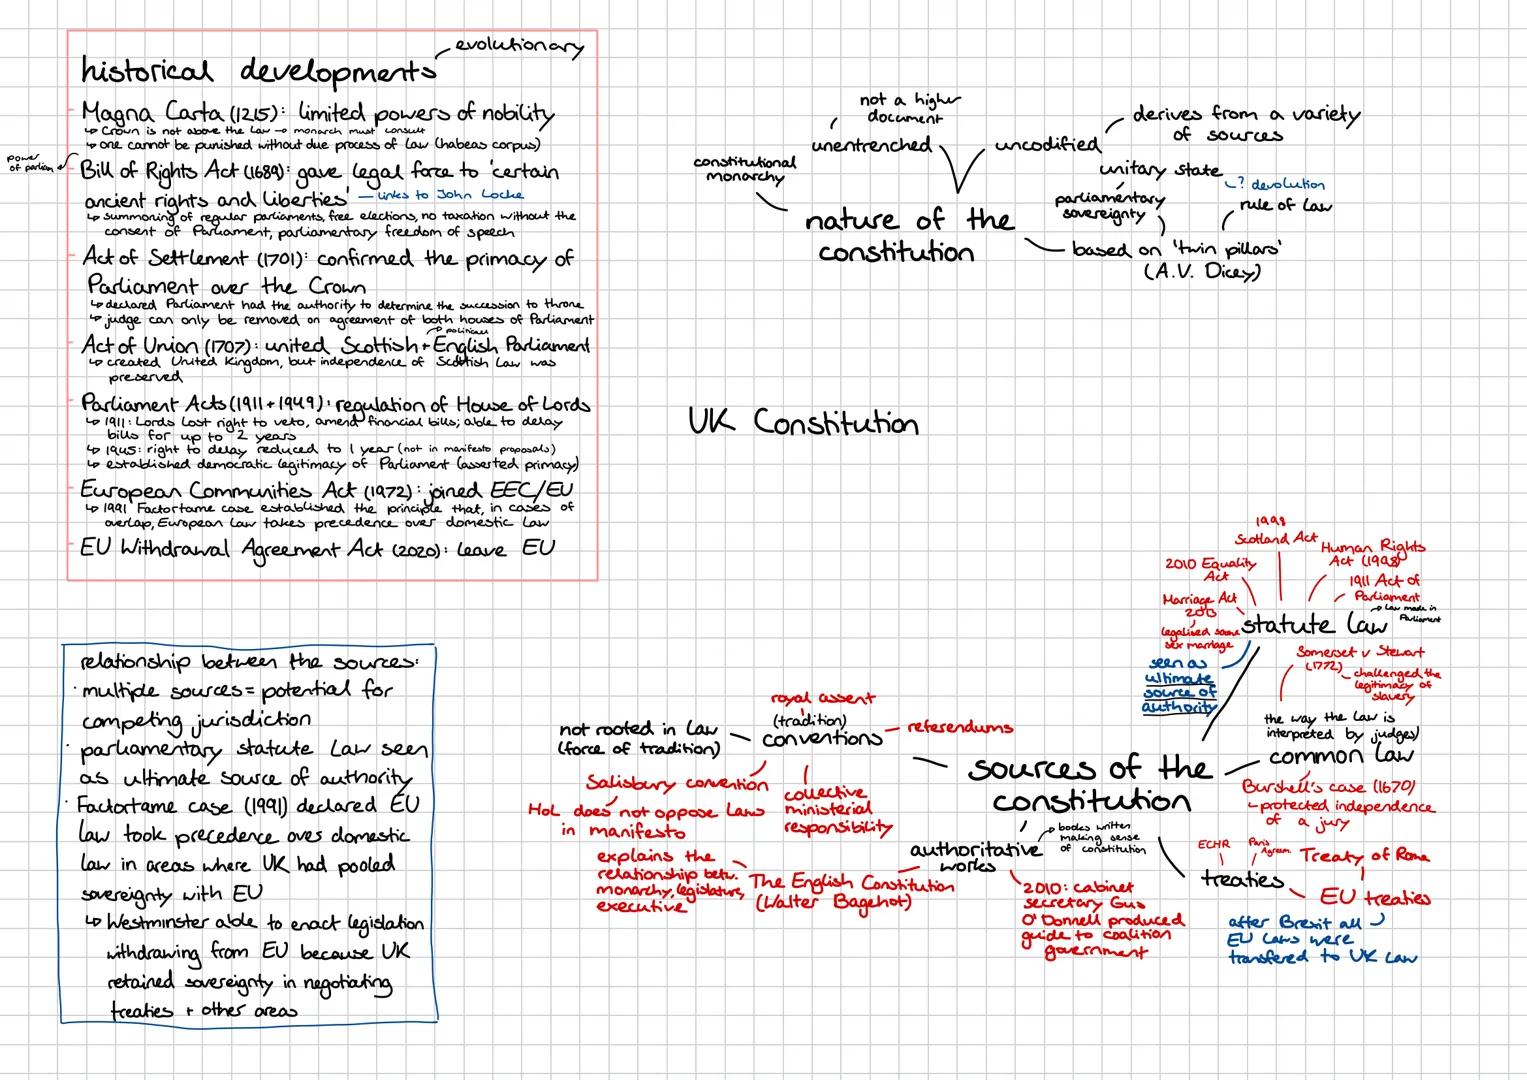 evolutionary
historical developments
Magna Carta (1215): limited powers of nobility
↳ Crown is not above the law → monarch must consult
↳ one cannot be punished without due process of law (habeas corpus)
power
of parliam
Bill of Rights Act (1689): gave legal force to 'certain
ancient rights and liberties' — links to John Locke
↳ summoning of regular parliaments, free elections, no taxation without the
consent of Parliament, parliamentary freedom of speech
Act of Settlement (1701): confirmed the primacy of
Parliament over the Crown
↳ declared Parliament had the authority to determine the succession to throne
↳ judge can only be removed on agreement of both houses of Parliament
Act of Union (1707): united Scottish + English Parliament
↳ created United Kingdom, but independence of Scottish Law was
preserved
Parliament Acts (1911 + 1949): regulation of House of Lords
↳ 1911: Lords lost right to veto, amend financial bills; able to delay
bills for up to 2 years
↳ 1945: right to delay reduced to 1 year (not in manifesto proposals)
↳ established democratic legitimacy of Parliament (asserted primacy)
European Communities Act (1972): joined EEC/EU
↳ 1991 Factortame case established the principle that, in cases of
overlap, European law takes precedence over domestic law
EU Withdrawal Agreement Act (2020): leave EU
not a higher
document
unentrenched
constitutional
monarchy
uncodified
derives from a variety
of sources
unitary state
? devolution
parliamentary
sovereignty
rule of law
nature of the
constitution
based on 'twin pillars'
(A.V. Dicey)
UK Constitution
relationship between the sources:
· multiple sources = potential for
competing jurisdiction
· parliamentary statute law seen
as ultimate source of authority
· Factortame case (1991) declared EU
law took precedence over domestic
law in areas where UK had pooled
sovereignty with EU
↳ Westminster able to enact legislation
withdrawing from EU because UK
retained sovereignty in negotiating
treaties + other areas
sources of the
constitution
royal assent
(tradition)
conventions
referendums
not rooted in law
(force of tradition)
Salisbury convention
HoL does not oppose laws
in manifesto
collective
ministerial
responsibility
authoritative
works
books written
making sense
of constitution
The English Constitution
(Walter Bagehot)
explains the
relationship betw.
monarchy, legislature,
executive
2010: cabinet
secretary Gus
O'Donnell produced
guide to coalition
government
1998
Scotland Act
Human Rights
Act (1998)
2010 Equality
Act
1911 Act of
Parliament
Marriage Act
2013
legalised same
sex marriage
statute law
law made in
Parliament
seen as
ultimate
source of
authority
Somerset v Stewart
(1772)
challenged the
legitimacy of
slavery
the way the law is
interpreted by judges)
common law
Bushell's case (1670)
protected independence
of a jury
ECHR
Paris
Agreem.
Treaty of Rome
treaties
EU treaties
after Brexit all
EU laws were
transfered to UK law